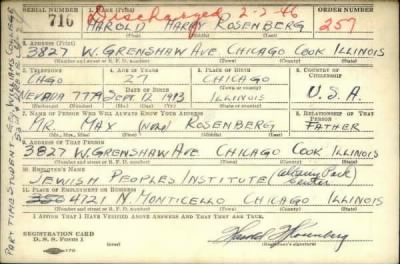 Discharged 2-2-46
SERIAL NUMBER 1. NAME (Print) ORDER NUMBER
716 HAROLD HARRY ROSENBERG 257
2. ADDRESS (Print)
3827 W. GRENSHAW AVE CHICAGO COOK ILLINOIS
3. TELEPHONE 4. AGE IN YEARS 5. PLACE OF BIRTH 6. COUNTRY OF CITIZENSHIP
CHGO 27 CHICAGO
DATE OF BIRTH
NEVADA 7790 SEPT. 12, 1913 ILLINOIS U.S.A.
7. NAME OF PERSON WHO WILL ALWAYS KNOW YOUR ADDRESS 8. RELATIONSHIP OF THAT PERSON
MR. MAX (NONE) ROSENBERG FATHER
9. ADDRESS OF THAT PERSON
3827 W. GRENSHAW AVE CHICAGO COOK ILLINOIS
10. EMPLOYER'S NAME
JEWISH PEOPLES INSTITUTE (Albany Park Center)
11. PLACE OF EMPLOYMENT OR BUSINESS
4721 N. MONTICELLO CHICAGO ILLINOIS
I AFFIRM THAT I HAVE VERIFIED ABOVE ANSWERS AND THAT THEY ARE TRUE.
REGISTRATION CARD
D. S. S. Form 1
Harold H Rosenberg
(Registrant's signature)
PART TIME STUDENT GEO WILLIAMS COLLEGE